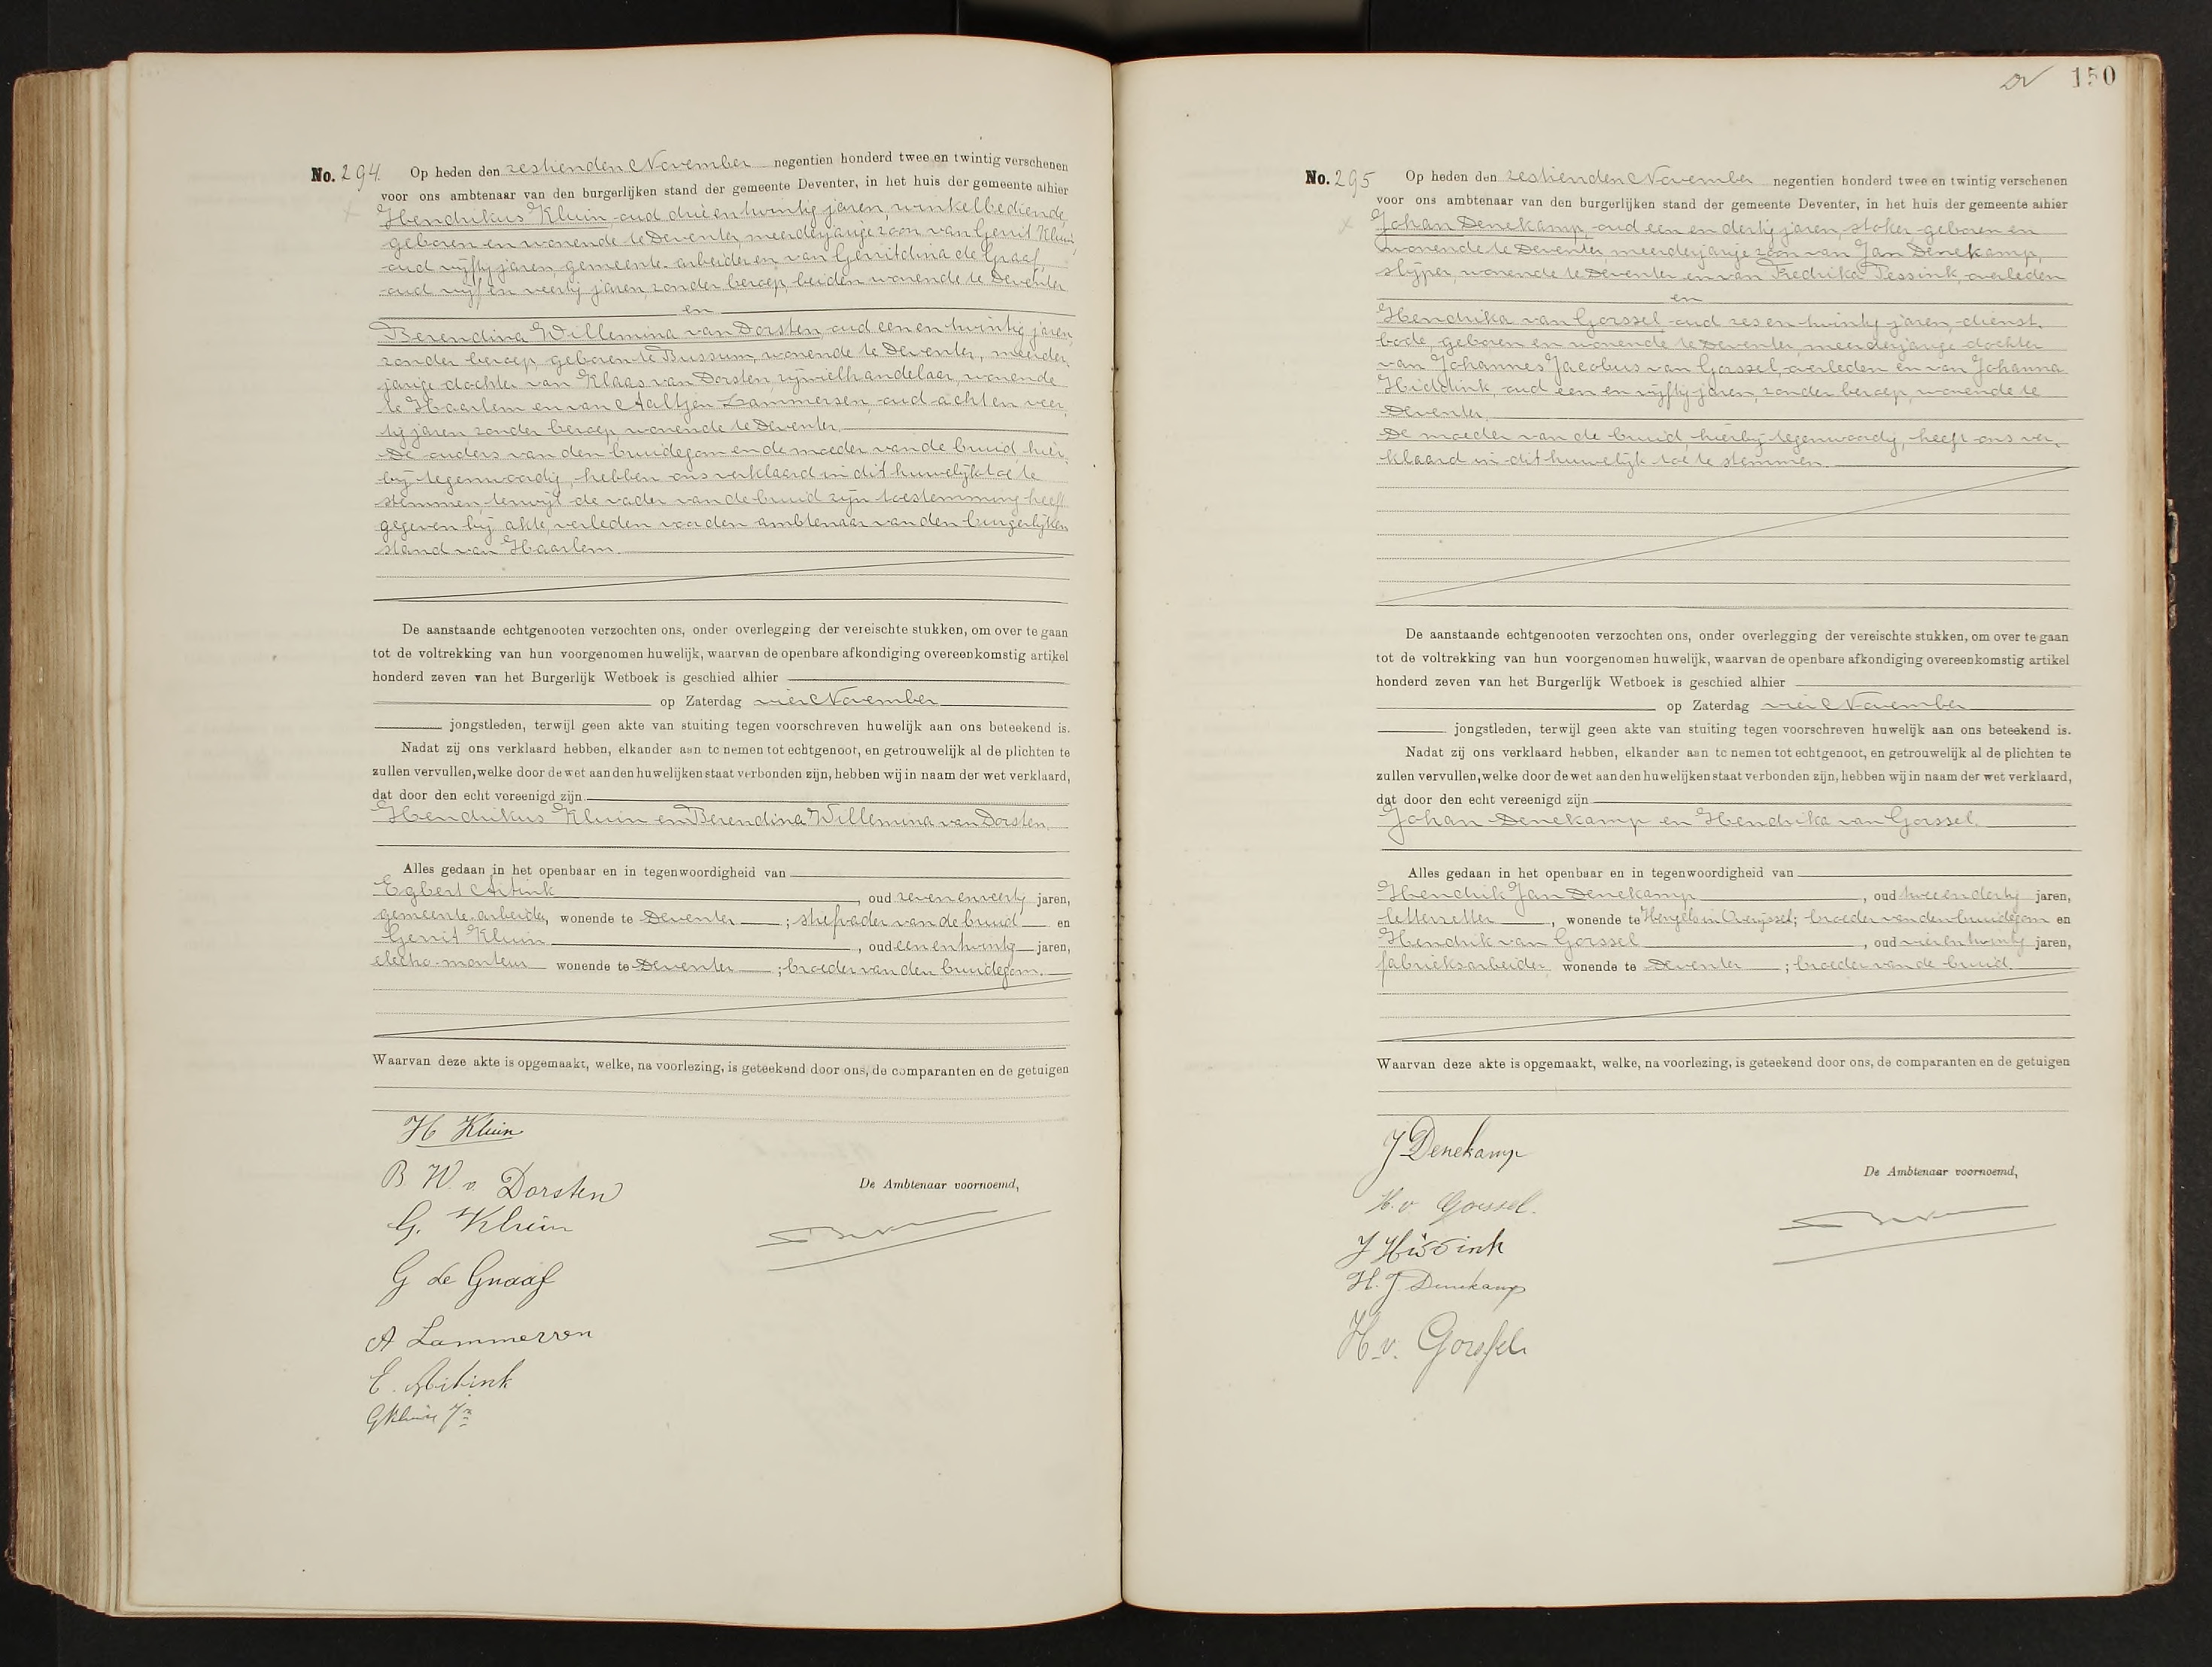 No. 294. Op heden den zestienden November negentien honderd twee en twintig verschenen
voor ons ambtenaar van den burgerlijken stand der gemeente Deventer, in het huis der gemeente alhier
Hendrikus Kluin, oud drie en twintig jaren, winkelbediende,
geboren en wonende te Deventer, meerderjarige zoon van Gerrit Kluin,
oud vijftig jaren, gemeente-arbeider en van Gerritdina de Graaf,
oud vijf en veertig jaren, zonder beroep, beiden wonende te Deventer
en
Berendina Willemina van Dorsten, oud een en twintig jaren,
zonder beroep, geboren te Bussum, wonende te Deventer, meerder-
jarige dochter van Klaas van Dorsten, rijwielhandelaar, wonende
te Haarlem en van Aaltjen Lammersen, oud acht en veer-
tig jaren, zonder beroep, wonende te Deventer.
De ouders van den bruidegom en de moeder van de bruid, hier-
bij tegenwoordig, hebben ons verklaard in dit huwelijk toe te
stemmen, terwijl de vader van de bruid zijn toestemming heeft
gegeven bij akte, verleden voor den ambtenaar van den burgerlijken
stand van Haarlem.
De aanstaande echtgenooten verzochten ons, onder overlegging der vereischte stukken, om over te gaan
tot de voltrekking van hun voorgenomen huwelijk, waarvan de openbare afkondiging overeenkomstig artikel
honderd zeven van het Burgerlijk Wetboek is geschied alhier
op Zaterdag vier November
jongstleden, terwijl geen akte van stuiting tegen voorschreven huwelijk aan ons beteekend is.
Nadat zij ons verklaard hebben, elkander aan te nemen tot echtgenoot, en getrouwelijk al de plichten te
zullen vervullen, welke door de wet aan den huwelijken staat verbonden zijn, hebben wij in naam der wet verklaard,
dat door den echt vereenigd zijn
Hendrikus Kluin en Berendina Willemina van Dorsten.
Alles gedaan in het openbaar en in tegenwoordigheid van
Egbert Aitink, oud zeven en veertig jaren,
gemeente-arbeider, wonende te Deventer; stiefvader van de bruid en
Gerrit Kluin, oud een en twintig jaren,
electro-monteur wonende te Deventer; broeder van den bruidegom.
Waarvan deze akte is opgemaakt, welke, na voorlezing, is geteekend door ons, de comparanten en de getuigen
H Kluin
B. W. v. Dorsten
G. Kluin
De Ambtenaar voornoemd,
G de Graaf
A Lammersen
E. Aitink
G Kluin Jr
150
No. 295 Op heden den zestienden November negentien honderd twee en twintig verschenen
voor ons ambtenaar van den burgerlijken stand der gemeente Deventer, in het huis der gemeente alhier
Johan Denekamp, oud een en dertig jaren, stoker, geboren en
wonende te Deventer, meerderjarige zoon van Jan Denekamp,
slijper, wonende te Deventer en van Fredrika Tessink, overleden
en
Hendrika van Gorssel, oud zes en twintig jaren, dienst-
bode, geboren en wonende te Deventer, meerderjarige dochter
van Johannes Jacobus van Gorssel, overleden en van Johanna
Hiddink, oud een en vijftig jaren, zonder beroep, wonende te
Deventer.
De moeder van de bruid, hierbij tegenwoordig, heeft ons ver-
klaard in dit huwelijk toe te stemmen.
De aanstaande echtgenooten verzochten ons, onder overlegging der vereischte stukken, om over te gaan
tot de voltrekking van hun voorgenomen huwelijk, waarvan de openbare afkondiging overeenkomstig artikel
honderd zeven van het Burgerlijk Wetboek is geschied alhier
op Zaterdag vier November
jongstleden, terwijl geen akte van stuiting tegen voorschreven huwelijk aan ons beteekend is.
Nadat zij ons verklaard hebben, elkander aan te nemen tot echtgenoot, en getrouwelijk al de plichten te
zullen vervullen, welke door de wet aan den huwelijken staat verbonden zijn, hebben wij in naam der wet verklaard,
dat door den echt vereenigd zijn
Johan Denekamp en Hendrika van Gorssel.
Alles gedaan in het openbaar en in tegenwoordigheid van
Hendrik Jan Denekamp, oud twee en dertig jaren,
letterzetter, wonende te Hengelo in Overijssel; broeder van den bruidegom en
Hendrik van Gorssel, oud vier en twintig jaren,
fabrieksarbeider, wonende te Deventer; broeder van de bruid.
Waarvan deze akte is opgemaakt, welke, na voorlezing, is geteekend door ons, de comparanten en de getuigen
J Denekamp
De Ambtenaar voornoemd,
H. v. Gorssel.
J Hiddink
H. J. Denekamp
H. v. Gorssel